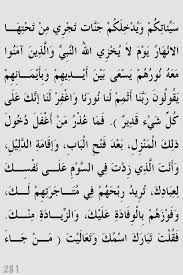 سَيِّئَاتِكُمْ وَيُدْخِلَكُمْ جَنَّاتٍ تَجْرِي مِنْ تَحْتِهَا
الأنْهَارُ يَوْمَ لَا يُخْزِي اللهُ النَّبِيَّ وَالَّذِينَ آمَنُوا
مَعَهُ نُورُهُمْ يَسْعَى بَيْنَ أَيْدِيهِمْ وَبِأَيْمَانِهِمْ
يَقُولُونَ رَبَّنَا أَتْمِمْ لَنَا نُورَنَا وَاغْفِرْ لَنَا إِنَّكَ عَلَى
كُلِّ شَيْءٍ قَدِيرٌ ). فَمَا عُذْرُ مَنْ أَغْفَلَ دُخُولَ
ذلِكَ الْمَنْزِلِ، بَعْدَ فَتْحِ الْبَابِ، وَإِقَامَةِ الدَّلِيْلِ،
وَأَنْتَ الَّذِي زِدْتَ فِي السَّوْمِ عَلَى نَفْسِكَ
لِعِبَادِكَ، تُرِيدُ رِبْحَهُمْ فِي مُتَاجَرَتِهِمْ لَكَ،
وَفَوْزَهُمْ بِالْوِفَادَةِ عَلَيْكَ، وَالزِّيَادَةِ مِنْكَ،
فَقُلْتَ تَبَارَكَ اسْمُكَ وَتَعَالَيْتَ ( مَنْ جَاءَ
281